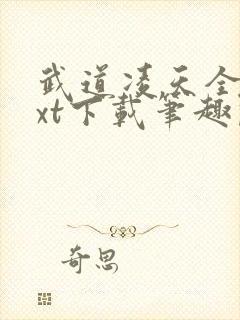 武道凌天全
xt下载笔趣
奇思